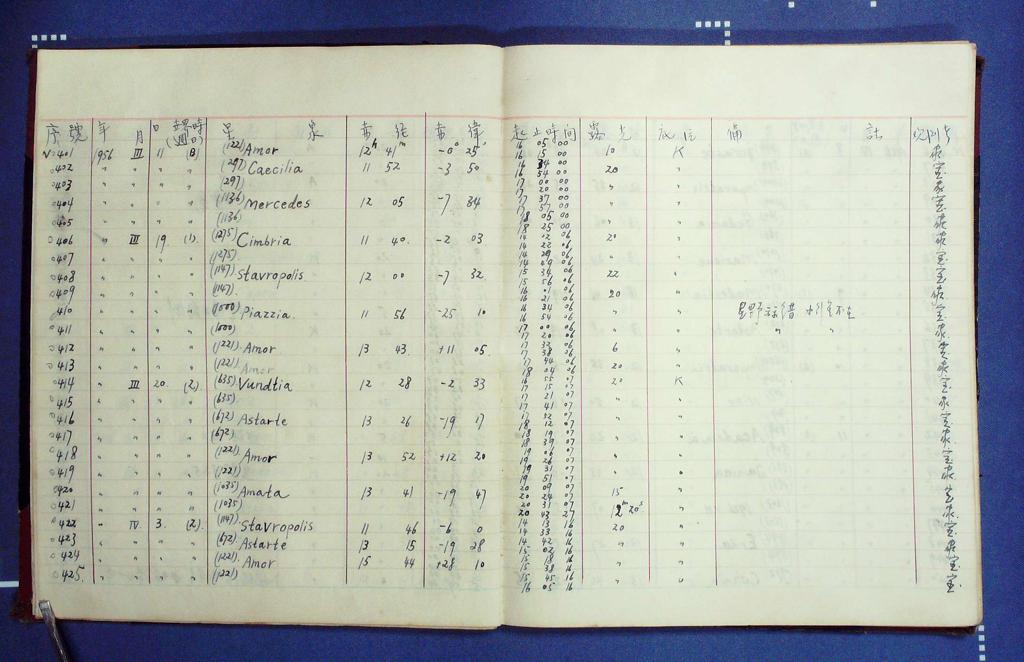 序號 年 月 日 世界時(週日) 星象 赤經 赤緯 起止時間 露光 底片 備註 觀測者
401 1956 III 11 (B) (1221) Amor 12h 41m -0° 25' 16 05 00 16 15 00 10 K
402 " " " " (297) Caecilia 11 52 -3 50 16 34 00 16 54 00 20 "
403 " " " " (297) 17 00 00 17 20 00 " "
404 " " " " (1136) Mercedes 12 05 -7 34 17 37 00 17 57 00 " "
405 " " " " (1136) 18 05 00 18 25 00 " "
406 " III 19. (1). (1275) Cimbria 11 40. -2 03 14 02 06 14 22 06 20 "
407 " " " " (1275). 14 29 06 14 49 06 " "
408 " " " " (1147) Stavropolis. 12 00 -7 32 15 34 06 15 56 06 22 "
409 " " " " (1147). 16 01 06 16 21 06 20 "
410 " " " " (1000) Piazzia 11 56 -25 10 16 34 06 16 54 06 " "
411 " " " " (1000) 17 00 06 17 20 06 " " "
412 " " " " (1221) Amor 13 43. +11 05 17 32 06 17 38 06 6 "
413 " " " " (1221) Amor 17 44 06 18 04 06 20 "
414 " III 20. (2). (635) Vundtia 12 28 -2 33 16 55 07 17 15 07 20 K
415 " " " " (635) 17 21 07 17 41 07 " "
416 " " " " (672) Astarte 13 26 -19 17 17 52 07 18 12 07 " "
417 " " " " (672) 18 19 07 18 39 07 " "
418 " " " " (1221) Amor 13 52 +12 20 19 06 07 19 26 07 " "
419 " " " " (1221) 19 31 07 19 51 07 " "
420 " " " " (1035) Amata 13 41 -19 47 20 09 07 20 24 07 15 "
421 " " " " (1035) 20 31 07 20 43 27 12m 20s "
422 " IV 3. (2). (1147) Stavropolis 11 46 -6 0 14 13 16 14 33 16 20 "
423 " " " " (672) Astarte 13 15 -19 28 14 42 16 15 02 16 " "
424 " " " " (1221) Amor 15 44 +28 10 15 18 16 15 38 16 " "
425. " " " " (1221) 15 45 16 16 05 16 " "